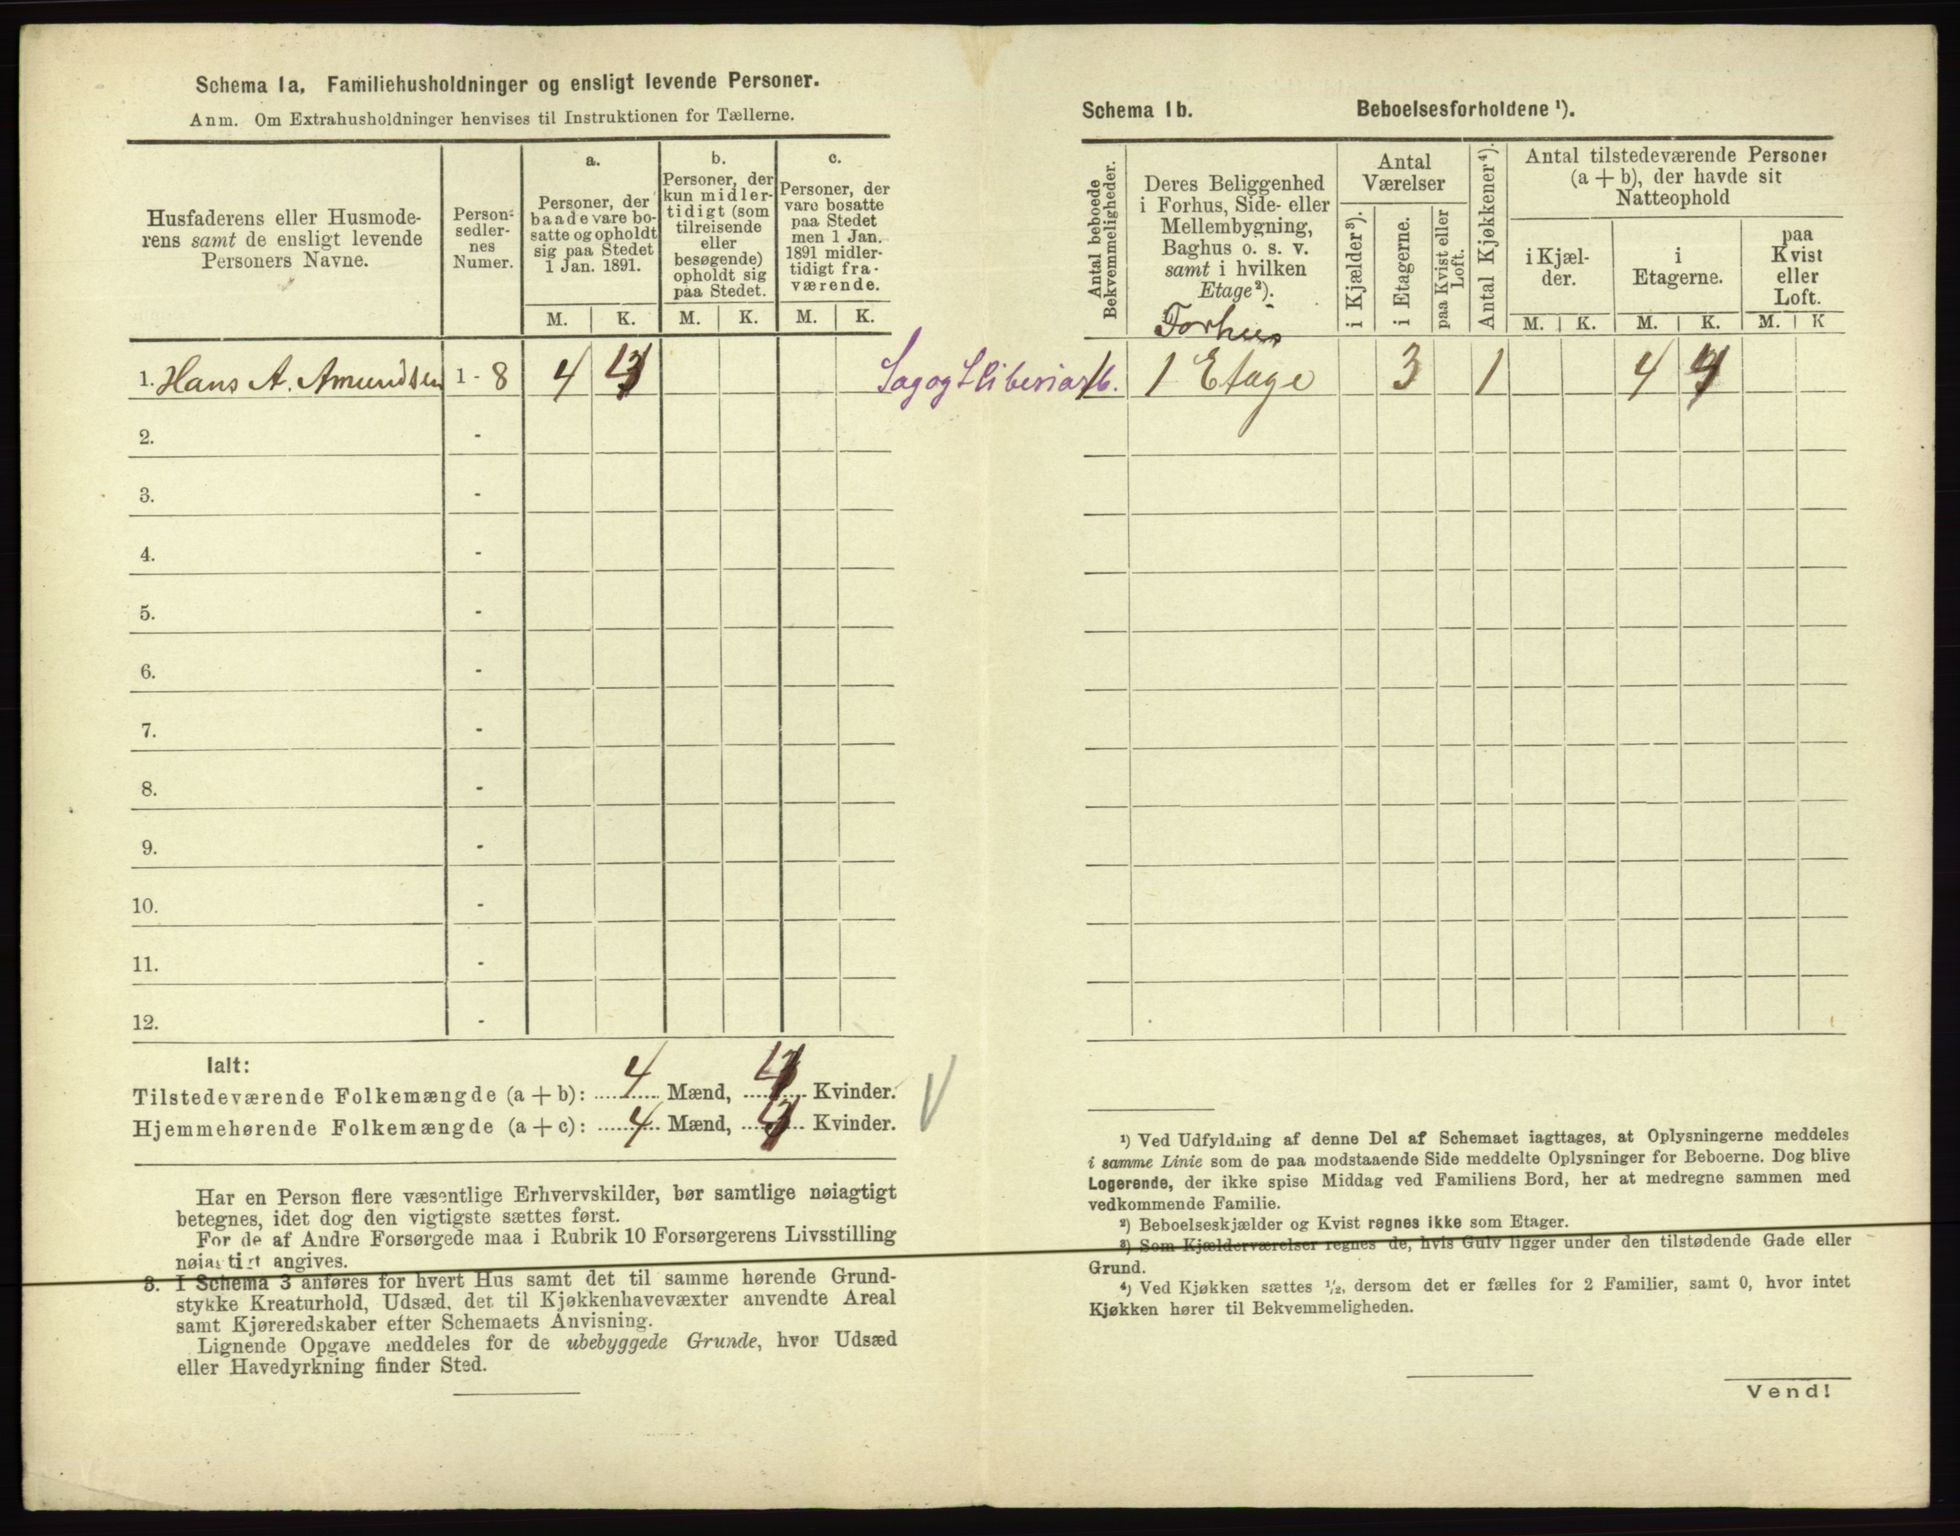 Schema 1a, Familiehusholdninger og ensligt levende Personer.
Anm. Om Extrahusholdninger henvises til Instruktionen for Tællerne.
Husfaderens eller Husmode-
rens samt de ensligt levende
Personers Navne.
Person-
sedler-
nes
Numer.
a.
Personer, der
baade vare bo-
satte og opholdt
sig paa Stedet
1 Jan. 1891.
b.
Personer, der
kun midler-
tidigt (som
tilreisende
eller
besøgende)
opholdt sig
paa Stedet.
c.
Personer, der
vare bosatte
paa Stedet
men 1 Jan.
1891 midler-
tidigt fra-
værende.
M. K. M. K. M. K.
1. Hans A. Amundsen 1 - 8 4
2. -
3. -
4. -
5. -
6. -
7. -
8. -
9. -
10. -
11. -
12. -
Ialt:
Tilstedeværende Folkemængde (a + b): 4 Mænd, Kvinder.
Hjemmehørende Folkemængde (a + c): 4 Mænd, Kvinder.
Har en Person flere væsentlige Erhvervskilder, bør samtlige nøiagtigt
betegnes, idet dog den vigtigste sættes først.
For de af Andre Forsørgede maa i Rubrik 10 Forsørgerens Livsstilling
nøiagtigt angives.
3. I Schema 3 anføres for hvert Hus samt det til samme hørende Grund-
stykke Kreaturhold, Udsæd, det til Kjøkkenhavevæxter anvendte Areal
samt Kjøreredskaber efter Schemaets Anvisning.
Lignende Opgave meddeles for de ubebyggede Grunde, hvor Udsæd
eller Havedyrkning finder Sted.
Schema 1b. Beboelsesforholdene ¹).
Antal beboede
Bekvemmeligheder.
Deres Beliggenhed
i Forhus, Side- eller
Mellembygning,
Baghus o. s. v.
samt i hvilken
Etage²).
Antal
Værelser
i Kjælder³).
i Etagerne.
paa Kvist eller
Loft.
Antal Kjøkkener⁴).
Antal tilstedeværende Personer
(a + b), der havde sit
Natteophold
i Kjæl-
der.
i
Etagerne.
paa
Kvist
eller
Loft.
M. K. M. K. M. K
Forhus
Sag og Sliberiarb. 1 1 Etage 3 1 4
¹) Ved Udfyldning af denne Del af Schemaet iagttages, at Oplysningerne meddeles
i samme Linie som de paa modstaaende Side meddelte Oplysninger for Beboerne. Dog blive
Logerende, der ikke spise Middag ved Familiens Bord, her at medregne sammen med
vedkommende Familie.
²) Beboelseskjælder og Kvist regnes ikke som Etager.
³) Som Kjælderværelser regnes de, hvis Gulv ligger under den tilstødende Gade eller
Grund.
⁴) Ved Kjøkken sættes ½, dersom det er fælles for 2 Familier, samt 0, hvor intet
Kjøkken hører til Bekvemmeligheden.
Vend!